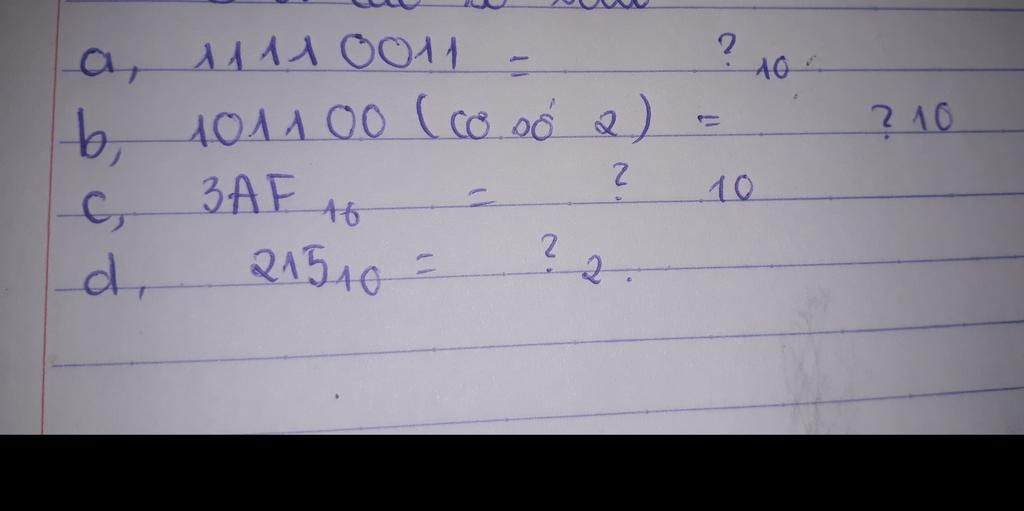 a, 11110011 = ? 10
b, 101100 (cơ số 2) = ? 10
c, 3AF 16 = ? 10
d, 215 10 = ? 2.